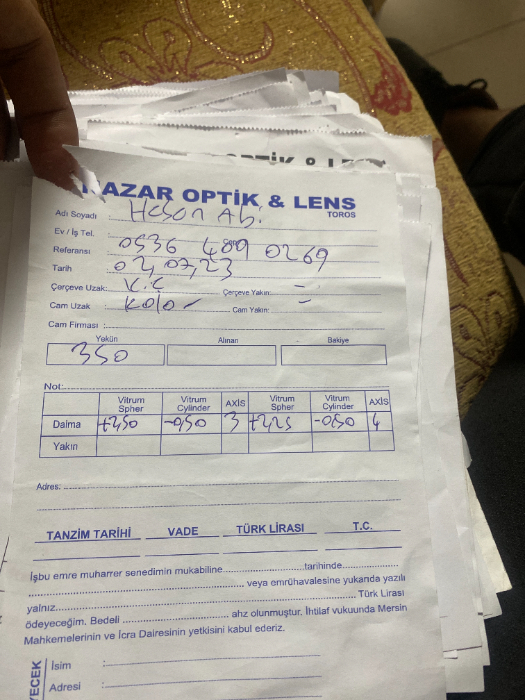 NAZAR OPTİK & LENS
TOROS
Adı Soyadı : Hason Abi.
Ev / İş Tel. :
Referansı : 0536 489 0269
Tarih : 02,07,23
Çerçeve Uzak: K.Ç Çerçeve Yakın: =
Cam Uzak : Kolo Cam Yakın:
Cam Firması :
Yekün Alınan Bakiye
350
Not:
Vitrum Spher Vitrum Cylinder AXİS Vitrum Spher Vitrum Cylinder AXİS
Daima +2,50 -0,50 3 +2,25 -0,50 4
Yakın
Adres:
TANZİM TARİHİ VADE TÜRK LİRASI T.C.
İşbu emre muharrer senedimin mukabiline tarihinde
veya emrühavalesine yukarıda yazılı
yalnız Türk Lirası
ödeyeceğim. Bedeli ahz olunmuştur. İhtilaf vukuunda Mersin
Mahkemelerinin ve İcra Dairesinin yetkisini kabul ederiz.
İsim :
Adresi :